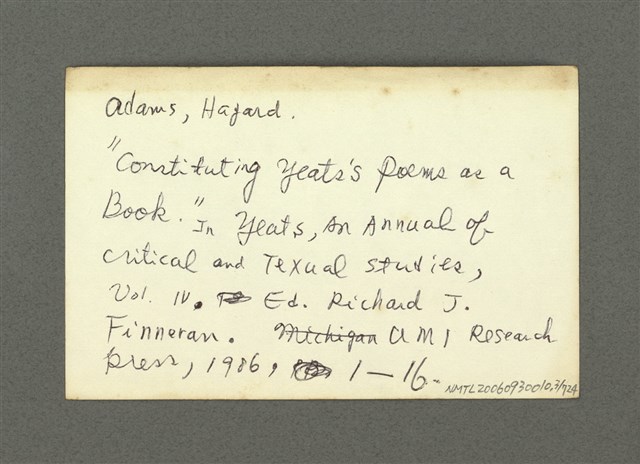 Adams, Hazard.
"Constituting Yeats's Poems as a
Book." In Yeats, An Annual of
critical and Texual studies,
Vol. IV. Ed. Richard J.
Finneran. Michigan UMI Research
press, 1986, 1-16.
NMTL20060930010.3/724